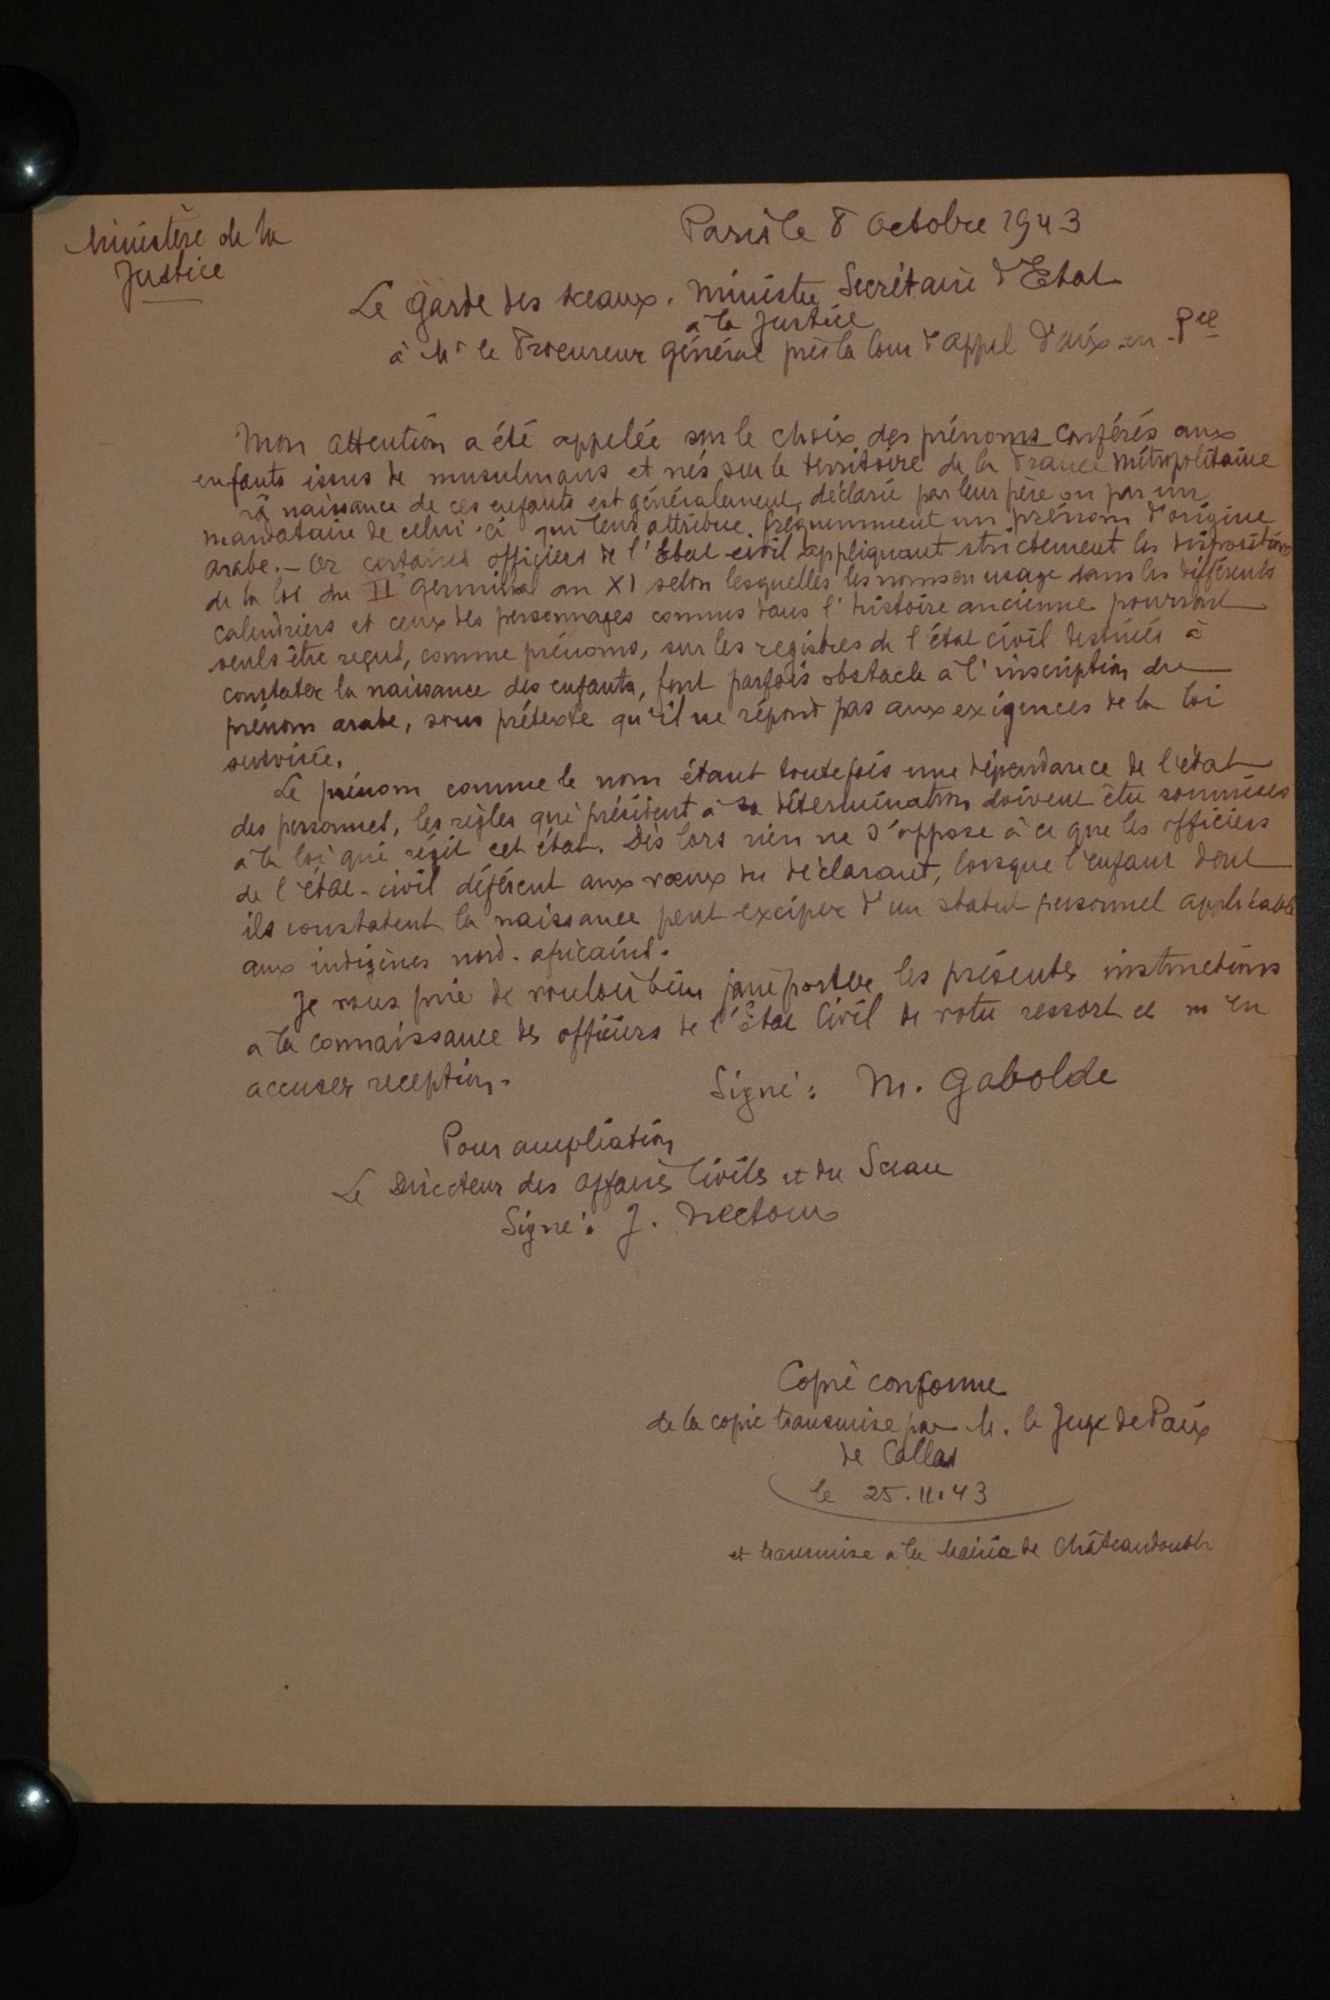 Ministère de la
Justice
Paris le 8 Octobre 1943
Le Garde des Sceaux. Ministre Secrétaire d'Etat
à la Justice
à Mr le Procureur Général près la Cour d'Appel d'Aix-en-Pce
Mon attention a été appelée sur le choix des prénoms conférés aux
enfants issus de musulmans et nés sur le territoire de la France Métropolitaine
La naissance de ces enfants est généralement, déclarée par leur père ou par un
mandataire de celui-ci qui leur attribue fréquemment un prénom d'origine
arabe. - Or certaines officiers de l'Etat civil appliquant strictement les dispositions
de la loi du II Germinal an XI selon lesquelles les noms en usage dans les différents
calendriers et ceux des personnages connus dans l'histoire ancienne pourront
seuls être reçus, comme prénoms, sur les registres de l'état civil destinés à
constater la naissance des enfants, font parfois obstacle à l'inscription du
prénom arabe, sous prétexte qu'il ne répond pas aux exigences de la loi
susvisée.
Le prénom comme le nom étant toutefois une dépendance de l'état
des personnes, les règles qui président à sa détermination doivent être soumises
à la loi qui régit cet état. Dès lors rien ne s'oppose à ce que les officiers
de l'état-civil défèrent aux vœux du déclarant, lorsque l'enfant dont
ils constatent la naissance peut exciper d'un statut personnel applicable
aux indigènes nord-africains.
Je vous prie de vouloir bien faire porter les présentes instructions
à la connaissance des officiers de l'Etat Civil de votre ressort et m'en
accuser reception.
Signé: M. Gabolde
Pour ampliation
Le Directeur des affaires Civiles et du Sceau
Signé: J. Nectoux
Copie conforme
de la copie transmise par M. le Juge de Paix
de Callas
le 25.11.43
et transmise à la Mairie de Châteaudouble